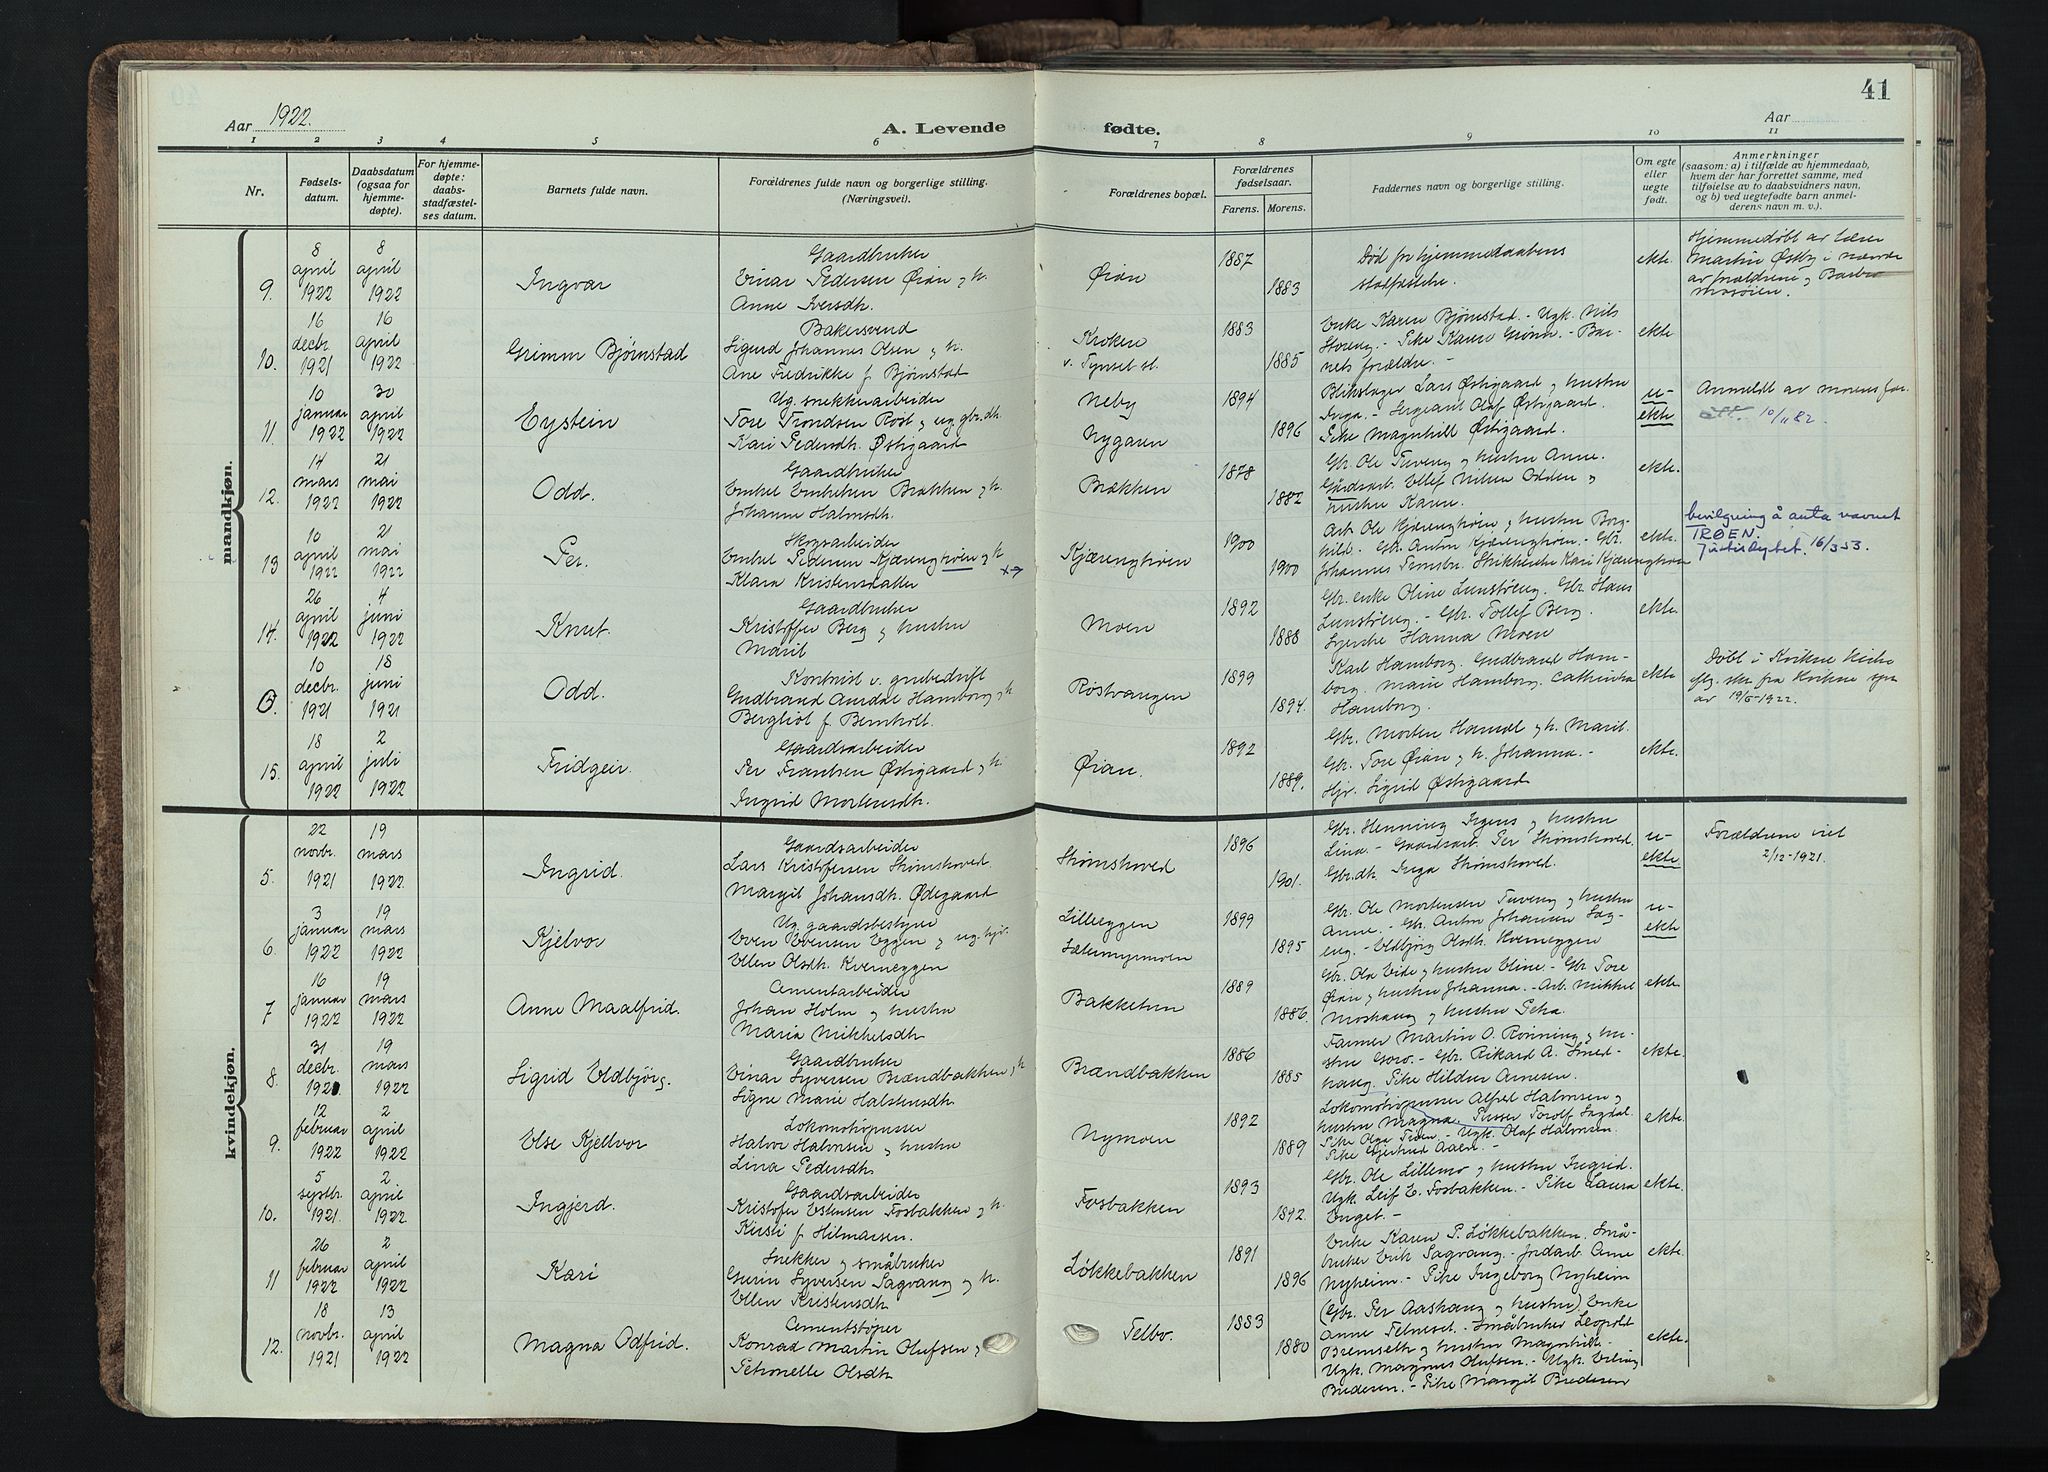 41
Aar 1922.
A. Levende fødte.
Aar
1 2 3 4 5 6 7 8 9 10 11
Nr.
Fødsels-
datum.
Daabsdatum
(ogsaa for
hjemme-
døpte).
For hjemme-
døpte:
daabs-
stadfæstel-
ses datum.
Barnets fulde navn.
Forældrenes fulde navn og borgerlige stilling.
(Næringsvei).
Forældrenes bopæl.
Forældrenes
fødselsaar.
Farens. Morens.
Faddernes navn og borgerlige stilling.
Om egte
eller
uegte
født.
Anmerkninger
(saasom: a) i tilfælde av hjemmedaab,
hvem der har forrettet samme, med
tilføielse av to daabsvidners navn,
og b) ved uegtefødte barn anmel-
derens navn m. v.).
mandkjøn.
9. 8 april 1922 8 april 1922 Ingvar
Gaardbruker
Einar Pedersen Øian, h.
Anne Iversdh.
Øian 1887 1883
Død før hjemmedaabens
stadfæstelse.
ekte.
Hjemmedøbt av lærer
Martin Østby i nærvær
av forældrene
10. 16 decbr. 1921 16 april 1922 Grimm Bjørnstad
Bakersvend
Sigurd Johannes Olsen, h.
Ane Fredrikke f. Bjørnstad
Kroken
v. Tynset st.
1883 1885
Enke Karen Bjørnstad. - Ugk. Nils
Storeng. - Pike Karen Grønn. - Bar-
nets forældre. -
ekte
11. 10 januar 1922 30 april 1922 Eystein
Ug. snekkerarbeider
Tore Trondsen Røst, ug. gbr.dt.
Kari Pedersdh. Østigaard
Neby
Nygaren
1894 1896
Blikslager Lars Østigaard, hustru
Inga. - Sergeant Olaf Østigaard.
Pike Magnhild Østigaard.
u-
ekte
Anmeldt av morens far.
10/11 82.
12. 14 mars 1922 21 mai 1922 Odd.
Gaardbruker
Embret Embretsen Brækken, h.
Johanne Halvorsdh.
Brækken 1878 1882
Gbr. Ole Tuveng, hustru Anne.
Gårdsarb. Ellef Nilsen Odden,
hustru Karen.
ekte.
13 10 april 1922 21 mai 1922 Per.
Skogsarbeider
Embret Pedersen Kjærengtrøen, h
Klara Kristensdatter
Kjærengtrøen 1900 1900
Arb. Ole Kjærengtrøen, hustru Borg-
hild. Gbr. Anton Kjærengtrøen. - Gbr.
Johannes Kari Kjærengtrøen
ekte.
bevilgning å anta navnet
TRØEN.
16/3 53.
14. 26 april 1922 4 juni 1922 Knut.
Gaardbruker
Kristoffer Berg, hustru
Marit
Moen 1892 1888
Gbr. enke Oline Lunsreng. Gbr. Hans
Lunsreng. - Gbr. Tollef Berg.
Syerske Hanna Moen
ekte.
0. 10 decbr. 1921 18 juni 1921 Odd.
Kontorist v. grubedrift
Gudbrand Amdal Hamborg, h
Bergliot f. Bernholt.
Røstvangen 1899 1894.
Karl Hamborg. Gudbrand Ham-
borg. Marie Hamborg. Cathinka
Hamborg.
ekte
Døbt i Kvikne kirke
19/6-1922.
15. 18 april 1922 2 juli 1922 Fridgeir.
Gaardsarbeider
Per Frantsen Østigaard, h.
Ingrid Mortensdh.
Øian. 1892 1889.
Gbr. Morten Hamdal, h. Marit.
Gbr. Tore Øian, h. Johanna. -
Hjr. Sigrid Østigaard
ekte.
kvindekjøn.
5. 22 novbr. 1921 19 mars 1922 Ingrid.
Gaardsarbeider
Lars Kristofersen Strømshoved.
Margit Johansdh. Ødegaard
Strømshoved 1896 1901.
Gbr. Henning Tegens, hustru
Lina. - Gaardsarb. Per Strømshoved.
Gbr.dt. Inga Strømshoved.
u-
ekte
Forældrene viet
2/12-1921.
6 3 januar 1922 19 mars 1922 Kjelvor
Ug. gaardsbestyrer
Even Evensen Eggen, ug. hjr.
Ellen Olsdh. Kverneggen
Lilleeggen
Sætermyrmoen
1899 1895
Gbr. Ole Mortensen Tuveng, hustru
Anne. - Gbr. Anton Johansen Sag-
eng. - Eldbjørg Olsdh. Kverneggen
u-
ekte
7 16 januar 1922 19 mars 1922 Anne Maalfrid.
Cementarbeider
Johan Holm, hustru
Maria Mikkelsdh.
Bakketun 1889 1886.
Gbr. Ola Eide, hustru Eline. - Gbr. Tore
Øian, hustru Johanna. - Arb. Mikkel
Moshaug, hustru
ekte.
8. 31 decbr. 1921. 19 mars 1922 Sigrid Eldbjørg.
Gaardbruker
Einar Syversen Brændbakken, h
Signe Marie Halstensdh.
Brændbakken 1886 1885
Farmer Martin O. Rønning, hu-
stru Guro. - Gbr. Rikard A. Smed-
haug. Pike Hildur Arnesen.
ekte.
9. 12 februar 1922 2 april 1922 Else Kjellvor
Lokomotivpusser
Halvor Halvorsen, hustru
Lina Pedersdh.
Nymoen 1892 1889
Lokomotivpusser Alfred Halvorsen,
hustru Magna. Pusser Torolf Sagdal.
Pike Olga Moen. - Ugk. Olaf Halvorsen.
Pike Gjertrud Aaen. -
ekte.
10. 5 septbr. 1921. 2 april 1922 Ingjerd.
Gaardsarbeider
Kristofer Estensen Fosbakken, h.
Kirsti f. Hilmarsen.
Fosbakken 1893 1892.
Gbr. Ole Lillemo, hustru Ingrid.
Ugk. Leif E. Fosbakken. - Pike Laura
Enget. -
ekte.
11 26 februar 1922 2 april 1922 Kari
Snekker, småbruker
Gurin Syversen Sagvang, h.
Ellen Kristensdh
Løkkebakken 1891 1896
Enke Karen P. Løkkebakken. Små-
bruker Erik Sagvang. - Jordarb. Arne
Nyheim. - Pike Ingeborg Nyheim
ekte.
12. 18 novbr. 1921 13 april 1922 Magna Odfrid.
Cementstøper
Konrad Martin Olufsen,
Petronelle Olsdh
Telbo. 1883 1880
(Gbr. Per Aashaug, hustru) Enke
Anne Telneset. - Småbruker Leopold
Bremseth, hustru Magnhild. -
Ugk. Magnus Olufsen. - Ugk. Erling
Bredesen. - Pike Margit Bredesen
ekte.